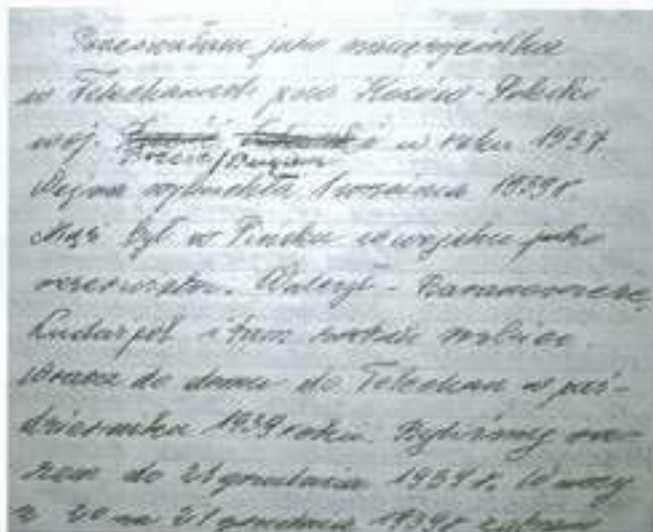 Pracowałam jako nauczycielka
w Telechanach pow. Kosów-Poleski
woj. w roku 1937.
Wojna wybuchła 1 września 1939 r.
Mąż był w Pińsku w wojsku jako
rezerwista. Walczył - Baranowicze,
i tam został
Wraca do domu do Telechan w paź-
dzierniku 1939 roku. Byliśmy ra-
zem do 21 grudnia 1939 r. W nocy
z 20 na 21 grudnia 1939 r.